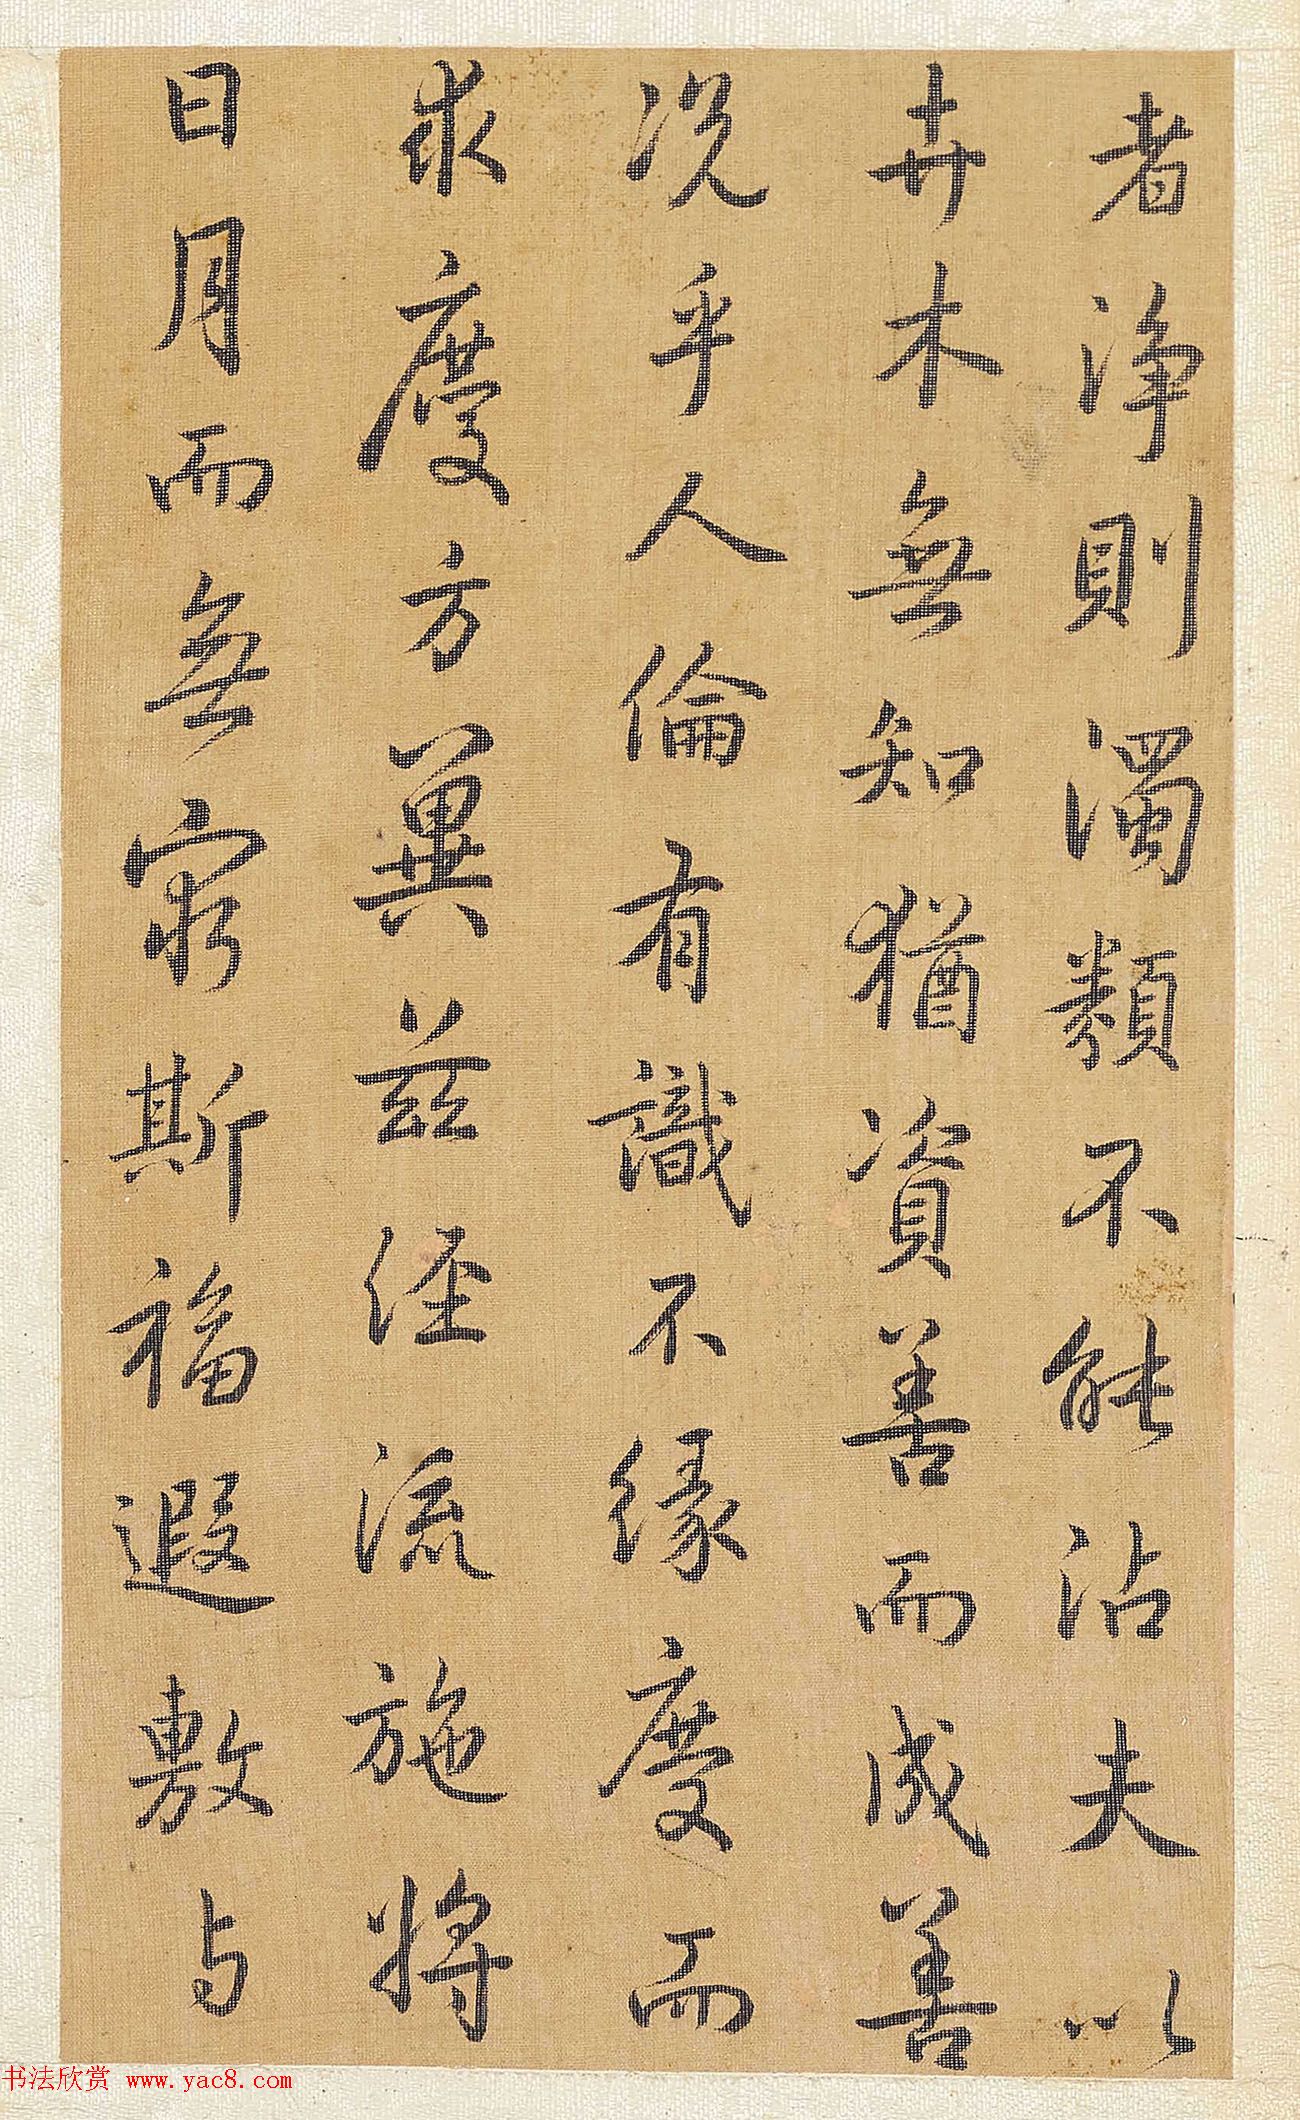 者淨則濁類不能沾夫以
卉木無知猶資善而成善
況乎人倫有識不緣慶而
求慶方冀茲經流施將
日月而無窮斯福遐敷与
书法欣赏 www.yac8.com